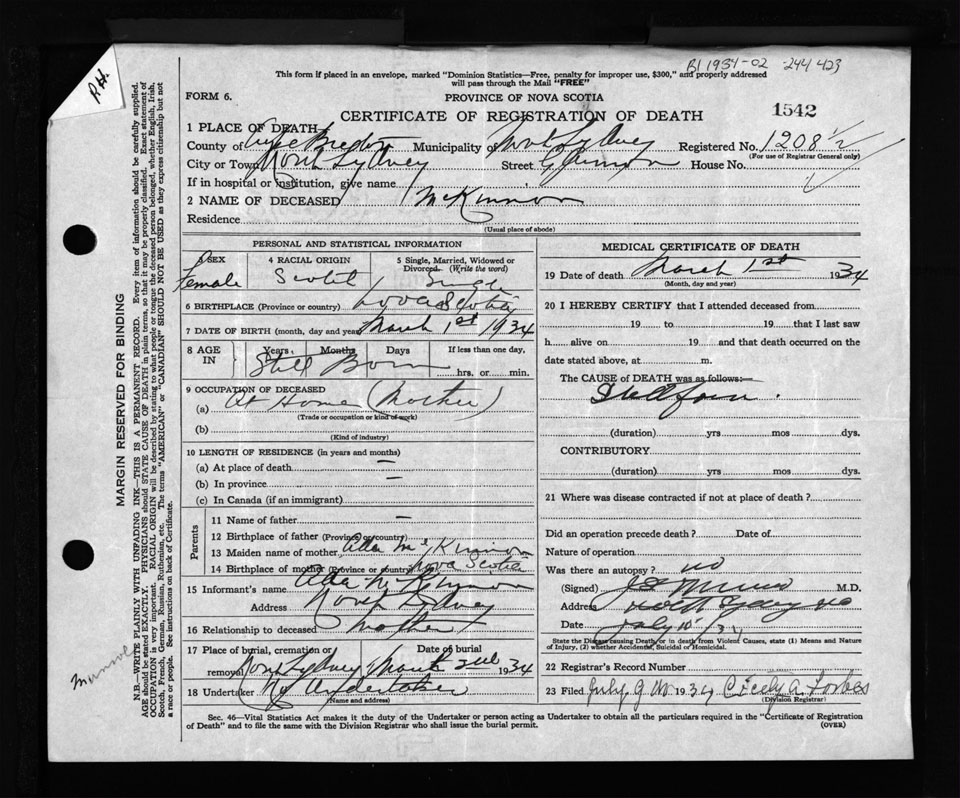 P.H.
B1 1934-02 244423
This form if placed in an envelope, marked "Dominion Statistics—Free, penalty for improper use, $300," and properly addressed
will pass through the Mail "FREE"
FORM 6.
PROVINCE OF NOVA SCOTIA
CERTIFICATE OF REGISTRATION OF DEATH
1542
1 PLACE OF DEATH
County of Cape Breton Municipality of North Sydney Registered No. 1208½
(For use of Registrar General only)
City or Town North Sydney Street House No.
If in hospital or institution, give name
2 NAME OF DECEASED McKinnon
Residence
(Usual place of abode)
PERSONAL AND STATISTICAL INFORMATION
3 SEX 4 RACIAL ORIGIN 5 Single, Married, Widowed or
Divorced. (Write the word)
Female Scotch Single
6 BIRTHPLACE (Province or country) Nova Scotia
7 DATE OF BIRTH (month, day and year) March 1st 1934
8 AGE IN Years Months Days If less than one day,
Still Born hrs. or min.
9 OCCUPATION OF DECEASED
(a) At Home (Mother)
(Trade or occupation or kind of work)
(b)
(Kind of industry)
10 LENGTH OF RESIDENCE (in years and months)
(a) At place of death —
(b) In province —
(c) In Canada (if an immigrant)
Parents
11 Name of father —
12 Birthplace of father (Province or country)
13 Maiden name of mother McKinnon
14 Birthplace of mother (Province or country) Nova Scotia
15 Informant's name McKinnon
Address North Sydney
16 Relationship to deceased mother
17 Place of burial, cremation or Date of burial
removal North Sydney March 2nd 1934
18 Undertaker No Undertaker
(Name and address)
MEDICAL CERTIFICATE OF DEATH
19 Date of death March 1st 1934
(Month, day and year)
20 I HEREBY CERTIFY that I attended deceased from
19 to 19 that I last saw
h alive on 19 and that death occurred on the
date stated above, at m.
The CAUSE of DEATH was as follows:—
Stillborn.
(duration) yrs mos dys.
CONTRIBUTORY
(duration) yrs mos dys.
21 Where was disease contracted if not at place of death?
Did an operation precede death? Date of
Nature of operation
Was there an autopsy? no
(Signed) M.D.
Address North Sydney NS
Date July 10/34
State the Disease causing Death, or in death from Violent Causes, state (1) Means and Nature
of Injury, (2) whether Accidental, Suicidal or Homicidal.
22 Registrar's Record Number
23 Filed July 9 1934 Cicely A. Forbes
(Division Registrar)
Sec. 46—Vital Statistics Act makes it the duty of the Undertaker or person acting as Undertaker to obtain all the particulars required in the "Certificate of Registration
of Death" and to file the same with the Division Registrar who shall issue the burial permit.
(OVER)
MARGIN RESERVED FOR BINDING
N.B.—WRITE PLAINLY WITH UNFADING INK—THIS IS A PERMANENT RECORD. Every item of information should be carefully supplied.
AGE should be stated EXACTLY. PHYSICIANS should STATE CAUSE OF DEATH in plain terms, so that it may be properly classified. Exact statement of
OCCUPATION is very important. RACIAL ORIGIN will be described by stating to what people or tongue the deceased person belonged, whether English, Irish,
Scotch, French, German, Russian, Ruthenian, etc. The terms "AMERICAN" or "CANADIAN" SHOULD NOT BE USED as they express citizenship but not
a race or people. See instructions on back of Certificate.
Munroe